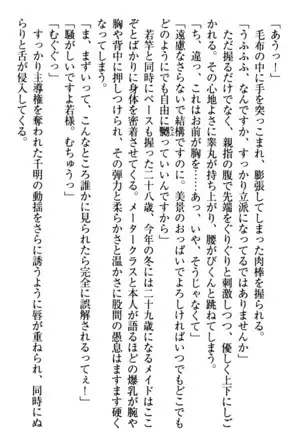 「あうっ！」
　毛布の中に手を突っこまれ、膨張してしまった肉棒を握られる。
「うふふふ、なんですか、すっかり立派になってるではありませんか」
　ただ握るだけでなく、親指の腹で先端をぐりぐりと刺激しつつ、優しく上下にしご
く。その心地よさに睾丸が持ち上がり、腰がびくんと跳ねてしまう。
「ち、違っ、これはお前が胸を……あっ、いや、そうじゃなくて」
「遠慮なさらないで結構ですのに。美景のおっぱいでよろしければいつでもどこでも
どれだけでも自由に嬲っていいんですから」
　若竿と同時にペースも握った二十八歳、今年の冬には二十九歳になるメイドはここ
ぞとばかりに身体を密着させてくる。メータークラスと本人が語るほどの爆乳が腕や
胸や背中に押しつけられ、その弾力と柔らかさと温かさに股間の愚息はますます硬く
なってしまう。
「ま、まずいって、こんなところ誰かに見られたら完全に誤解されるってぇ！」
「騒がしいですよ若様。むちゅうっ」
「むぐぐっ」
　すっかり主導権を奪われた千明の動揺をさらに誘うように唇が重ねられ、同時にぬ
らりと舌が侵入してくる。